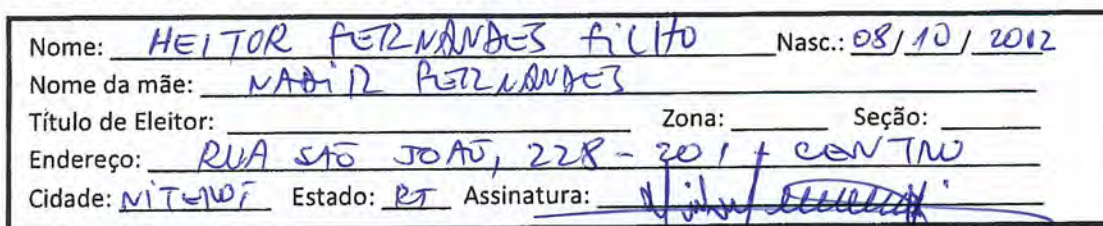 Nome: HEITOR FERNANDES FILHO Nasc.: 08/10/2012
Nome da mãe: NADIR FERNANDES
Título de Eleitor: Zona: Seção:
Endereço: RUA SÃO JOÃO, 228 - 201 CENTRO
Cidade: NITERÓI Estado: RJ Assinatura: